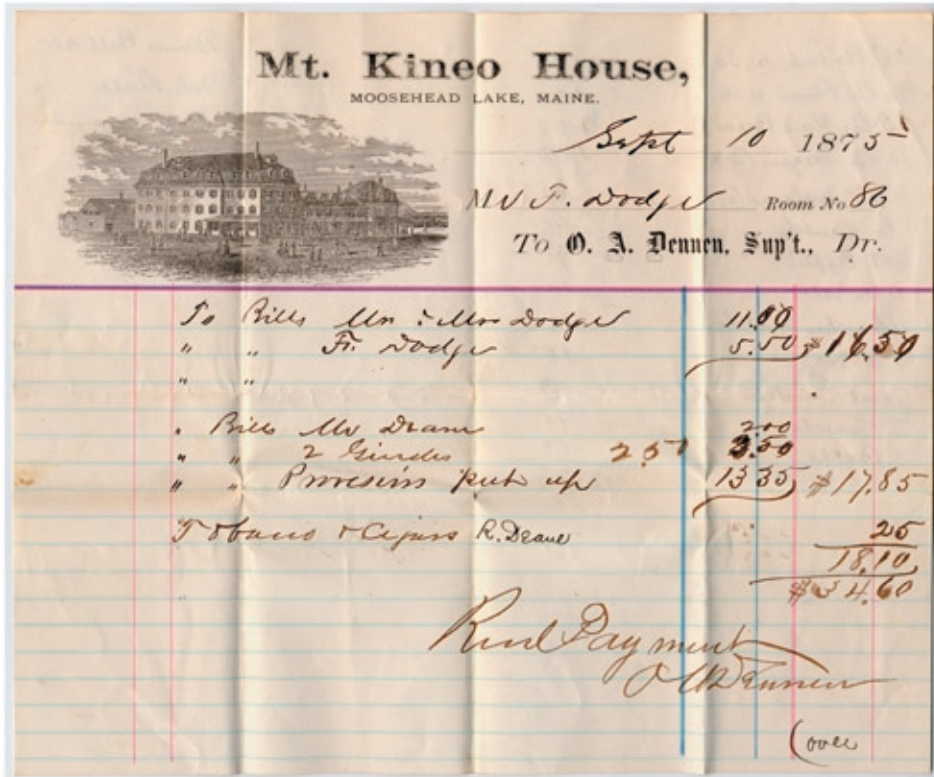 Mt. Kineo House,
MOOSEHEAD LAKE, MAINE.
Sept 10 1875
Mr F. Dodge Room No 86
To O. A. Dennen, Sup't., Dr.
To Bills Mr & Mrs Dodge 11.00
" " Fr. Dodge 5.50 $16.50
" "
" Bills Mr Deane 2.00
" " 2 Guides 2 50 2.50
" " Provisins put up 13 35 $17.85
Tobacco & Cigars R. Deane 25
18.10
$34.60
Recd Payment
O A Dennen
(over